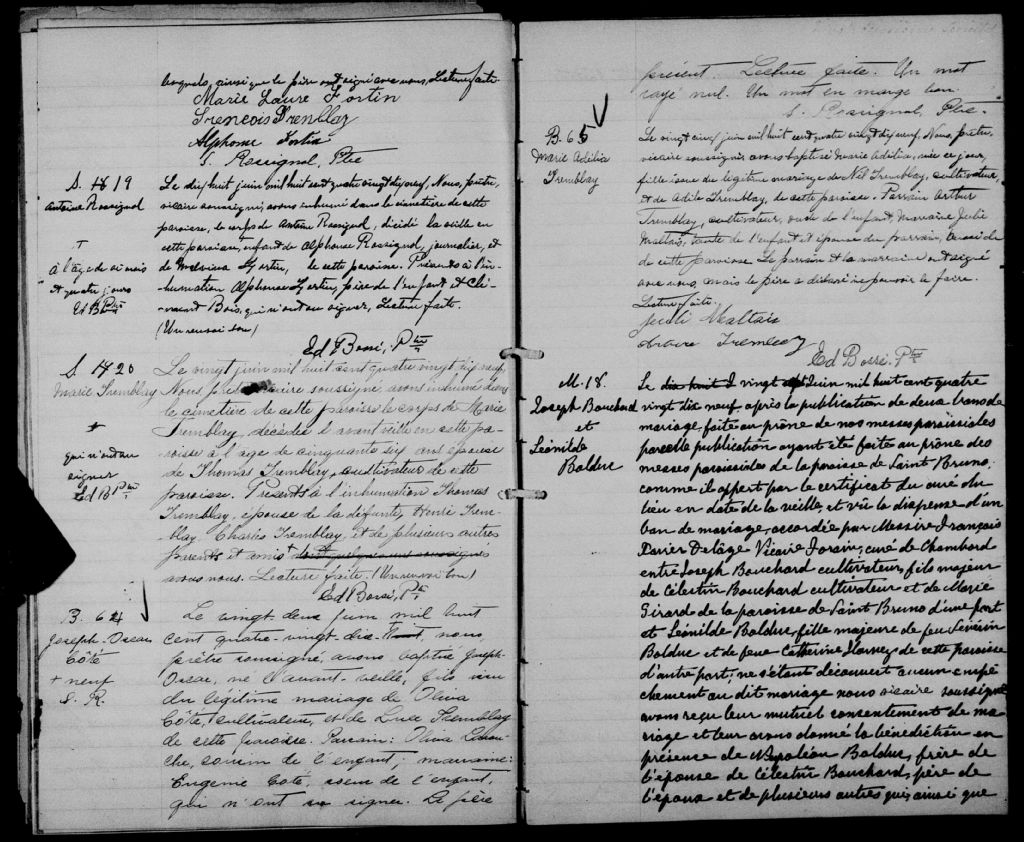 lesquels, ainsi que le père ont signé avec nous, Lecture faite
Marie Laure Fortin
Frencois Tremblay
Alphonse Fortin
S. Rossignol, Ptre
S. 19
Antoine Rossignol
+
à l'âge de six mois
et quatre jours
Ed B Ptre
Le dix huit juin mil huit cent quatre vingt dix neuf, Nous, prêtre,
vicaire soussigné, avons inhumé dans le cimetière de cette
paroisse, le corps de Antoine Rossignol, décédé la veille en
cette paroisse, enfant de Alphonse Rossignol, journalier, et
de Melvina Fortin, de cette paroisse. Présents à l'in-
humation Alphonse Fortin, père de l'enfant et Clé-
ment Bois, qui n'ont su signer, Lecture faite.
(Un renvoi bon)
Ed Bossé, Ptre
S. 20
Marie Tremblay
+
qui n'ont su
signer
Ed B Ptre
Le vingt juin mil huit cent quatre vingt dix neuf,
Nous prêtre vicaire soussigné avons inhumé dans
le cimetière de cette paroisse le corps de Marie
Tremblay, décédée l'avant veille en cette pa-
roisse à l'age de cinquante six ans épouse
de Thomas Tremblay, cultivateur de cette
paroisse. Présents à l'inhumation Thomas
Tremblay, épouse de la défunte, Henri Trem-
blay, Charles Tremblay, et de plusieurs autres
parents et amis + dont quelques uns soussignés
avec nous. Lecture faite. (Un renvoi bon)
Ed Bossé, Ptre
B. 64
Joseph-Oscar
Côté
+ neuf
S. R.
Le vingt deux juin mil huit
cent quatre-vingt-dix-huit, nous,
prêtre soussigné, avons baptisé Joseph-
Oscar, né l'avant-veille, fils issu
du légitime mariage de Olivia
Côté, cultivateur, et de Luce Tremblay
de cette paroisse. Parrain: Olivia
che, cousin de l'enfant; marraine:
Eugenie Coté, soeur de l'enfant,
qui n'ont su signer. Le père
présent. Lecture faite. Un mot
rayé nul. Un mot en marge bon.
S. Rossignol, Ptre.
B. 65
Marie Adilia
Tremblay
Le vingt cinq juin mil huit cent quatre vingt dix neuf, Nous, prêtre,
vicaire soussigné avons baptisé Marie Adilia, née ce jour,
fille issue du légitime mariage de Nil Tremblay, cultivateur,
et de Adile Tremblay, de cette paroisse. Parrain Arthur
Tremblay, cultivateur, oncle de l'enfant, Marraine Julie
Maltais, tante de l'enfant et épouse du parrain, aussi de
de cette paroisse. Le parrain et la marraine ont signé
avec nous, mais le père a déclaré ne pouvoir le faire.
Lecture faite.
Juli Maltais
Arture Tremblay
Ed Bossé, Ptre
M. 18.
Joseph Bouchard
et
Léonilde
Bolduc
Le dix huit J vingt sept Juin mil huit cent quatre
vingt dix neuf, après la publication de deux bans de
mariage, faite au prône de nos messes paroissiales
pareille publication ayant été faite au prône des
messes paroissiales de la paroisse de Saint Bruno,
comme il appert par le certificat du curé du
lieu en date de la veille, et vû la dispense d'un
ban de mariage, accordée par Messire François
Xavier Delâge Vicaire Forain, curé de Chambord
entre Joseph Bouchard cultivateur, fils majeur
de Célestin Bouchard cultivateur et de Marie
Girard de la paroisse de Saint Bruno d'une part
et Léonilde Bolduc, fille majeure de feu Sévérin
Bolduc et de feue Catherine Harvey de cette paroisse
d'autre part; ne s'étant découvert aucun empê-
chement au dit mariage nous vicaire soussigné
avons reçu leur mutuel consentement de ma-
riage et leur avons donné la bénédiction en
présence de Napoléon Bolduc, frère de
l'épouse de Célestin Bouchard, père de
l'époux et de plusieurs autres qui, ainsi que